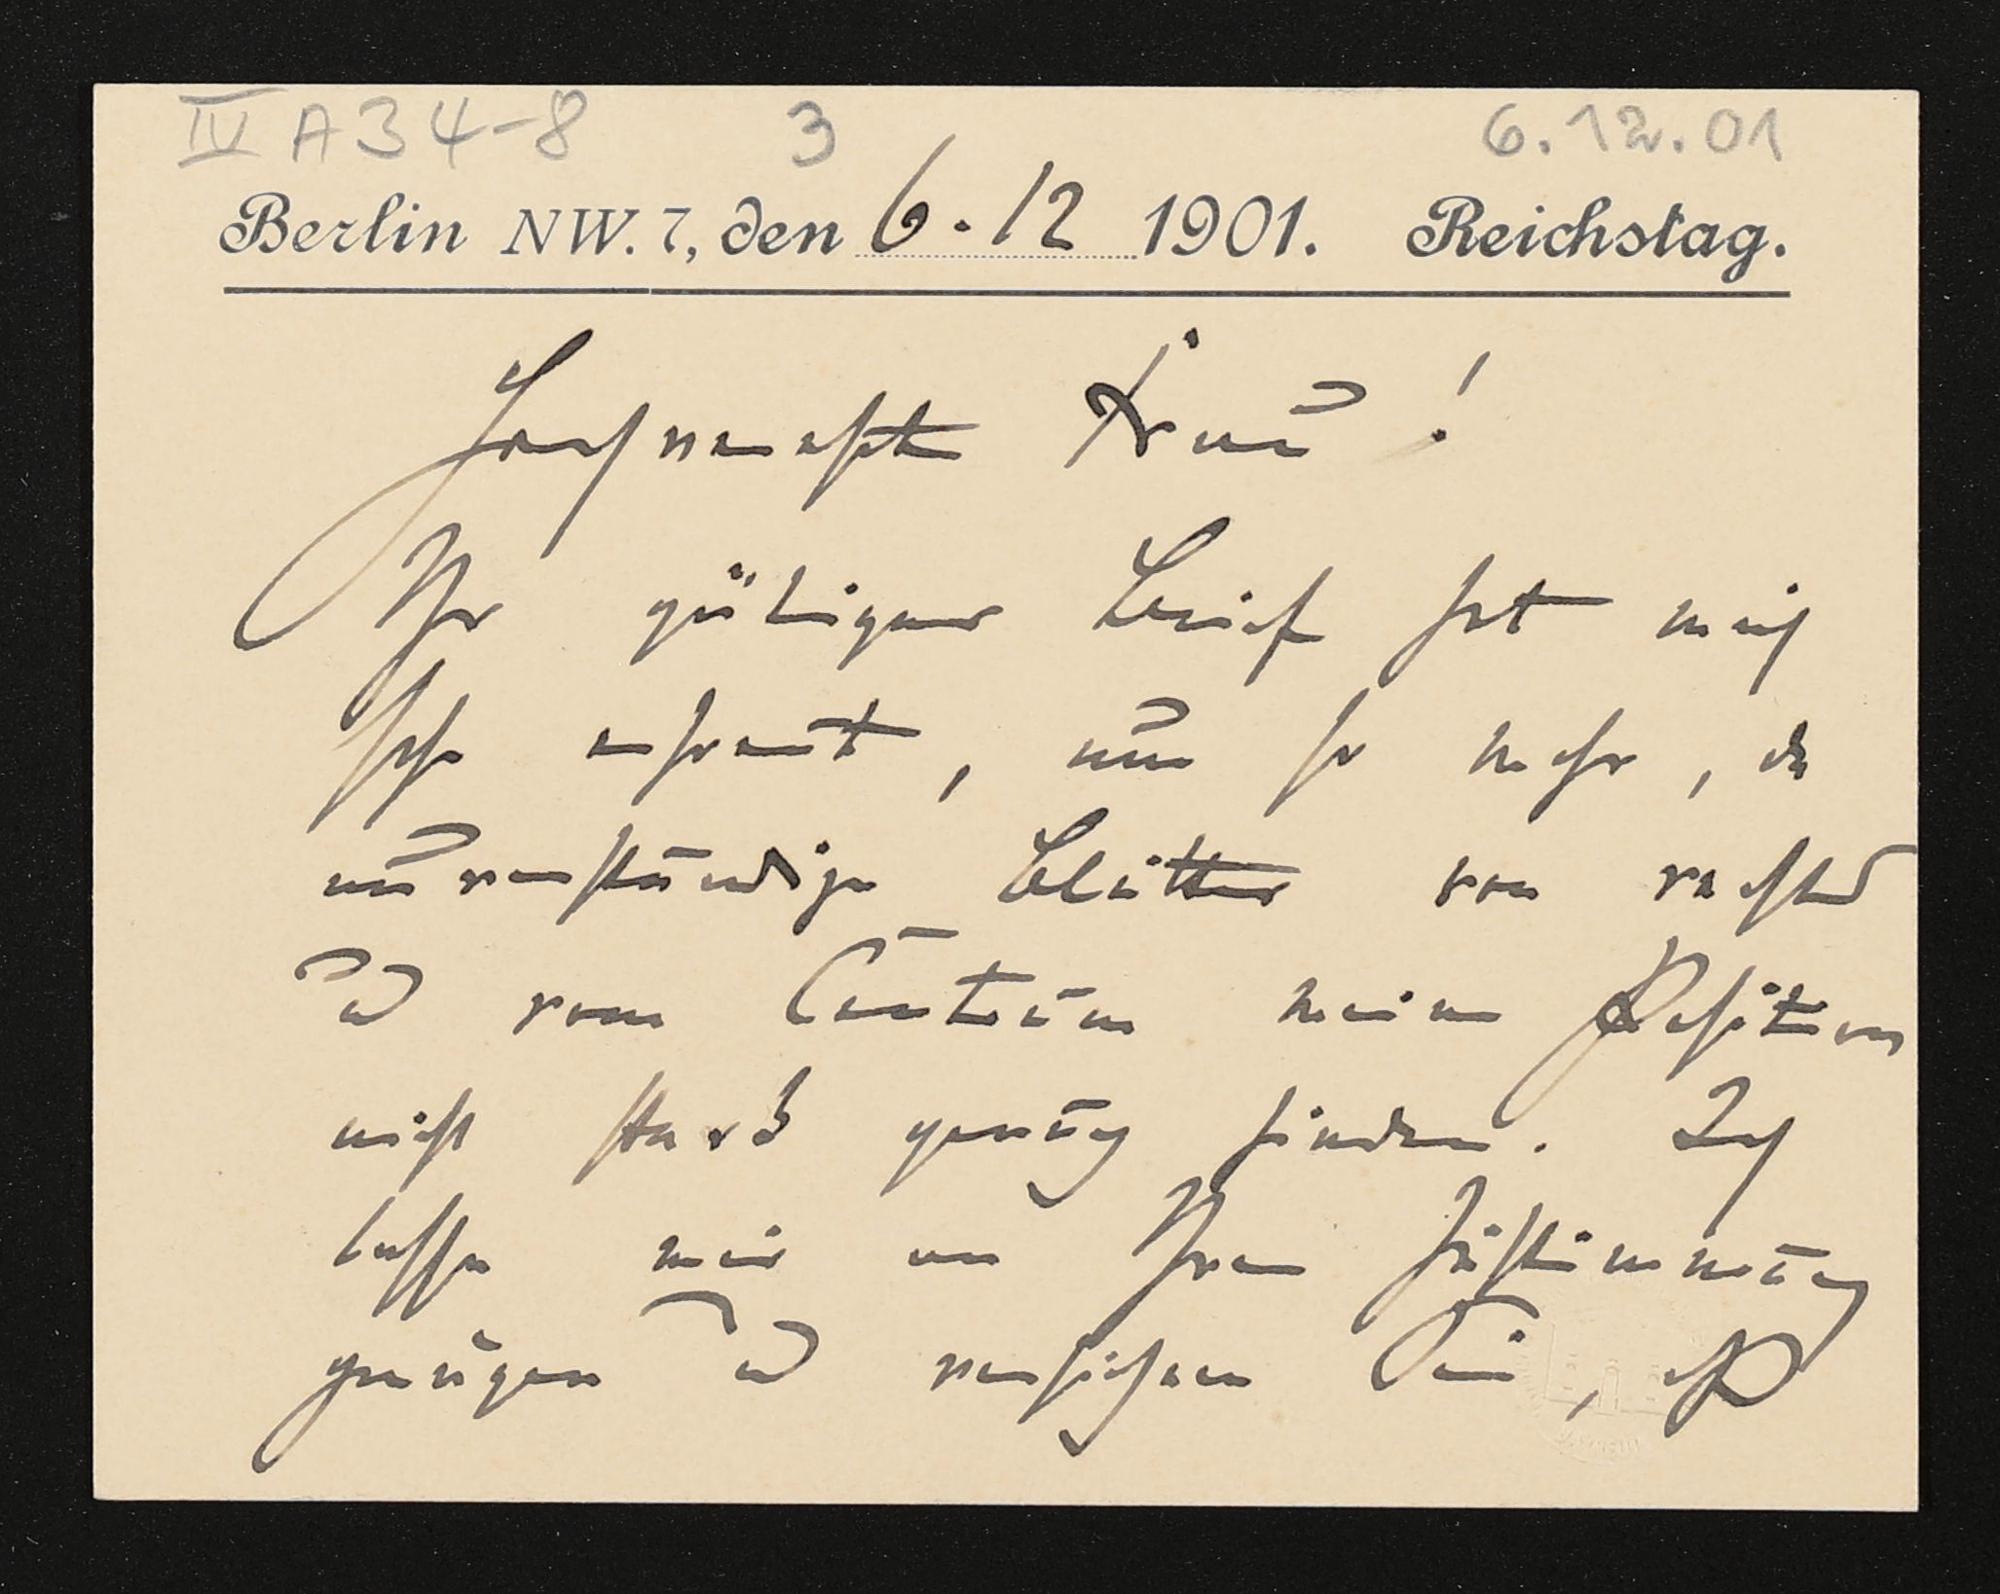 IV A 34-8 3 6.12.01
Berlin NW. 7, den 6.12 1901. Reichstag.
Hochverehrte Frau!
Ihr gütiger Brief hat mich
sehr erfreut, um so mehr, da
unverständige Blätter von rechts
u vom Centrum meine Position
nicht stark genug finden. Ich
lasse mir an Ihrer Zustimmung
genügen u versichere Sie,